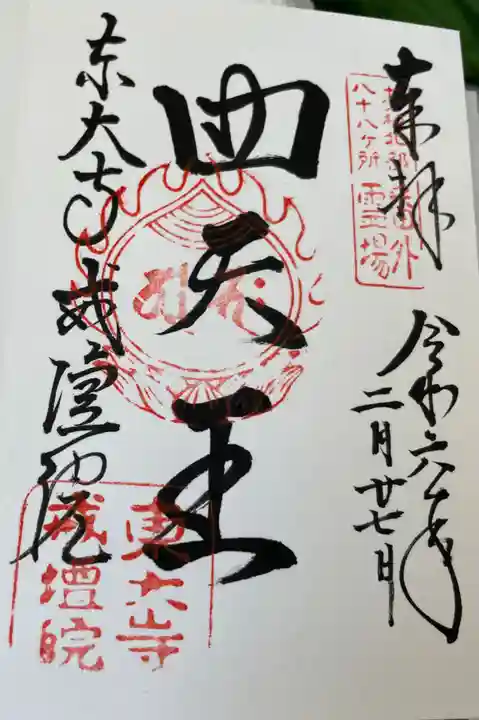 奉拝
令和六年
二月廿七日
四天王
東大寺戒壇院
八十八ヶ所
番外
霊場
東大寺
戒壇院